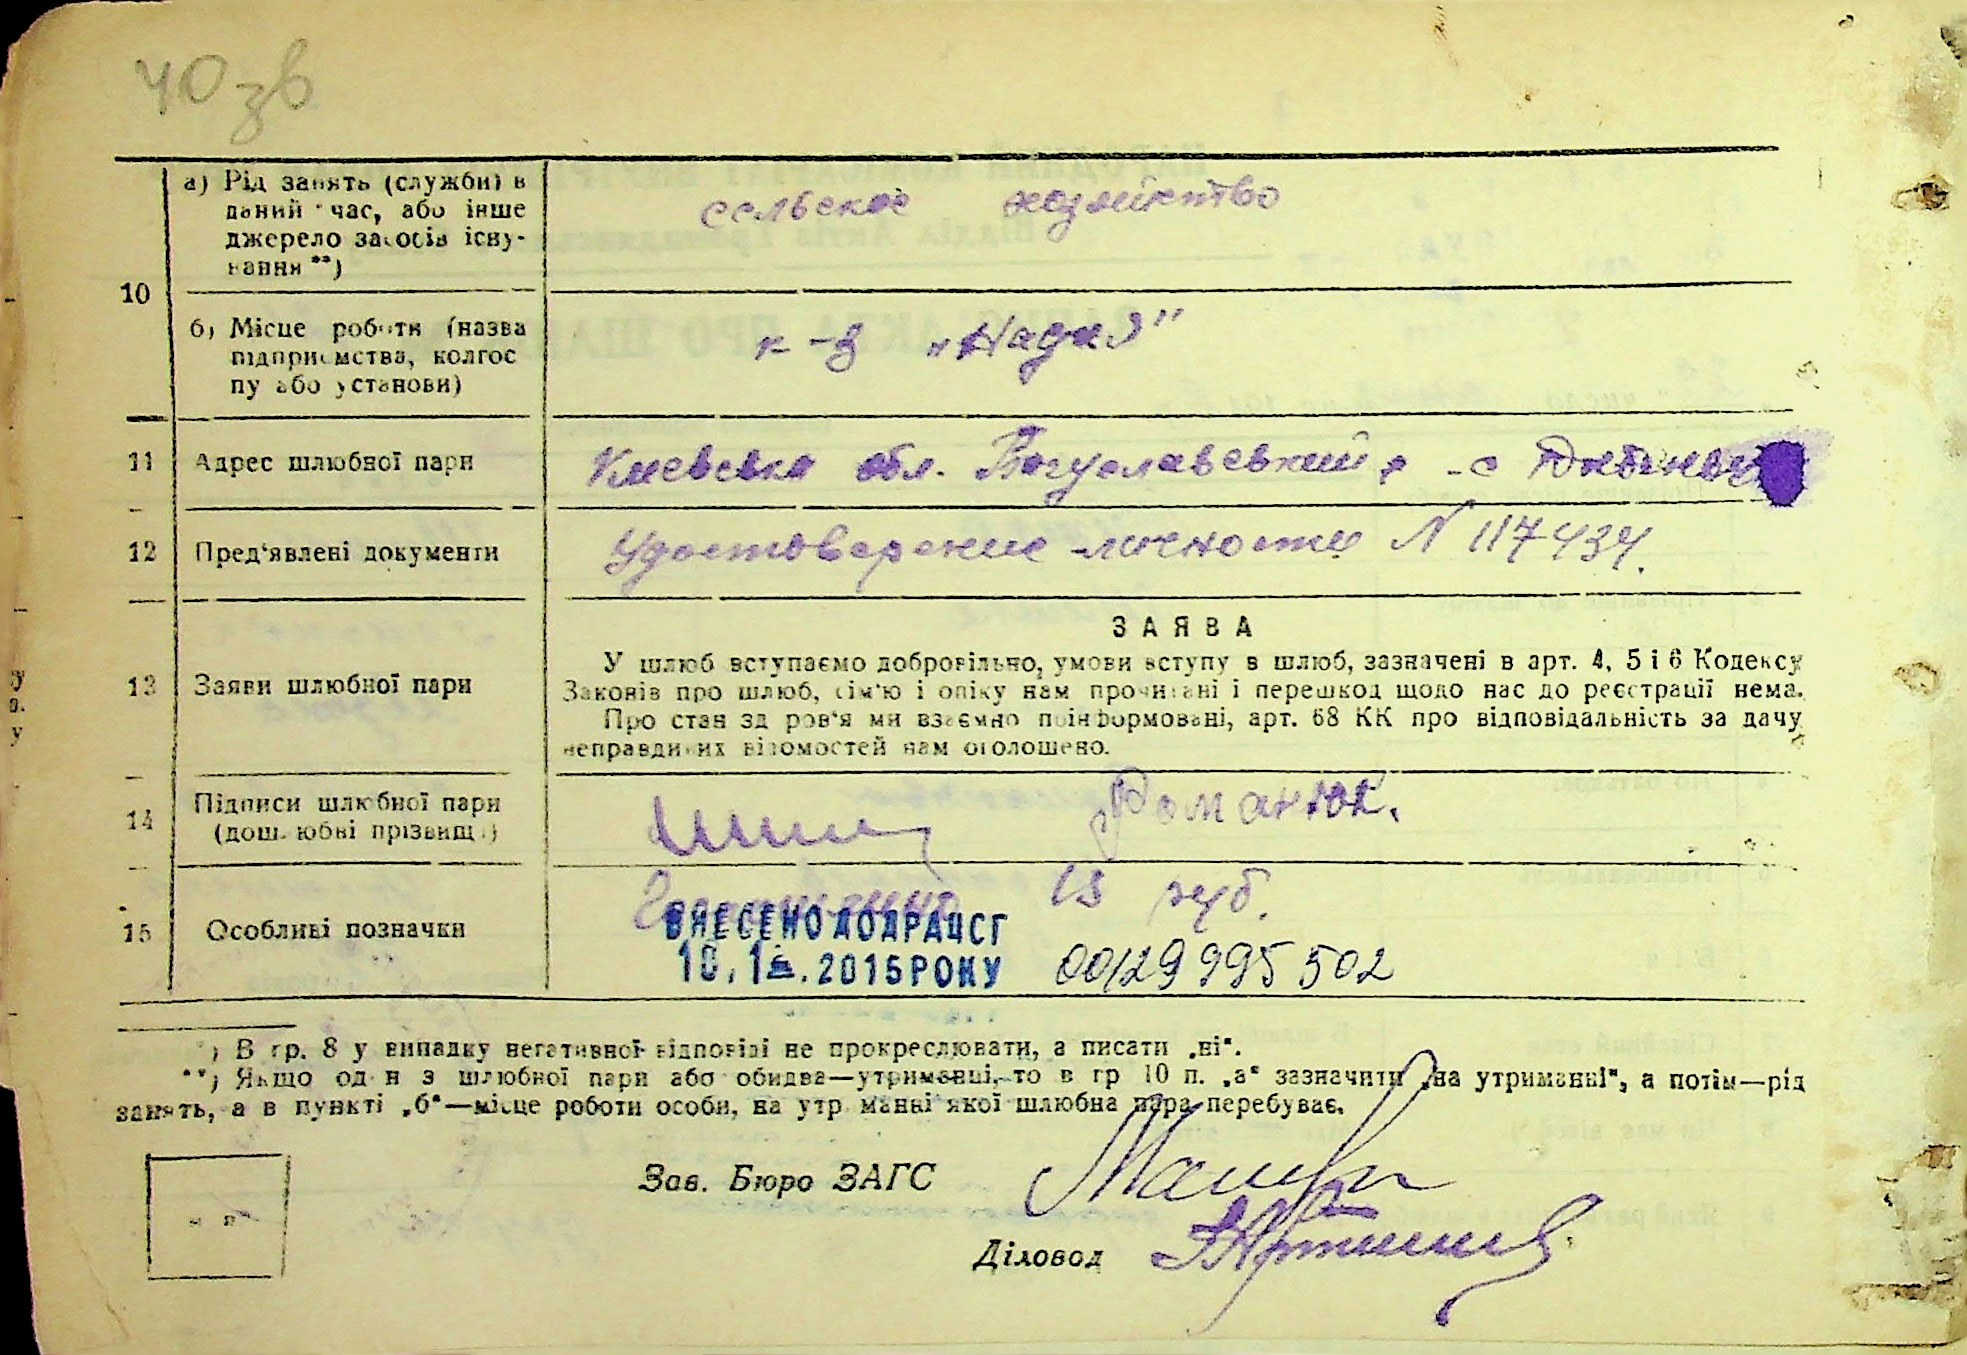 40 зв
10
а) Рід занять (служби) в
даний час, або інше
джерело засобів існу-
вання **)
сельское хозяйство
б) Місце роботи (назва
підприємства, колгос
пу або установи)
к-з „Надия"
11 Адрес шлюбної пари
Киевська обл. Богуславський р - с
12 Пред'явлені документи
Удостоверение личности N 117434.
13 Заяви шлюбної пари
ЗАЯВА
У шлюб вступаємо добровільно, умови вступу в шлюб, зазначені в арт. 4, 5 і 6 Кодексу
Законів про шлюб, сім'ю і опіку нам прочитані і перешкод щодо нас до реєстрації нема.
Про стан здоров'я ми взаємно поінформовані, арт. 68 КК про відповідальність за дачу
неправдивих відомостей нам оголошено.
14 Підписи шлюбної пари
(дошлюбні прізвища)
Романюк.
15 Особливі позначки
15 руб.
ВНЕСЕНО ДО ДРАЦСГ
2015 РОКУ 00129995502
*) В гр. 8 у випадку негативної відповіді не прокреслювати, а писати „ні".
**) Якщо один з шлюбної пари або обидва—утриманці, то в гр 10 п. „а" зазначити „на утриманні", а потім—рід
занять, а в пункті „б"—місце роботи особи, на утриманні якої шлюбна пара перебуває.
м п
Зав. Бюро ЗАГС
Діловод